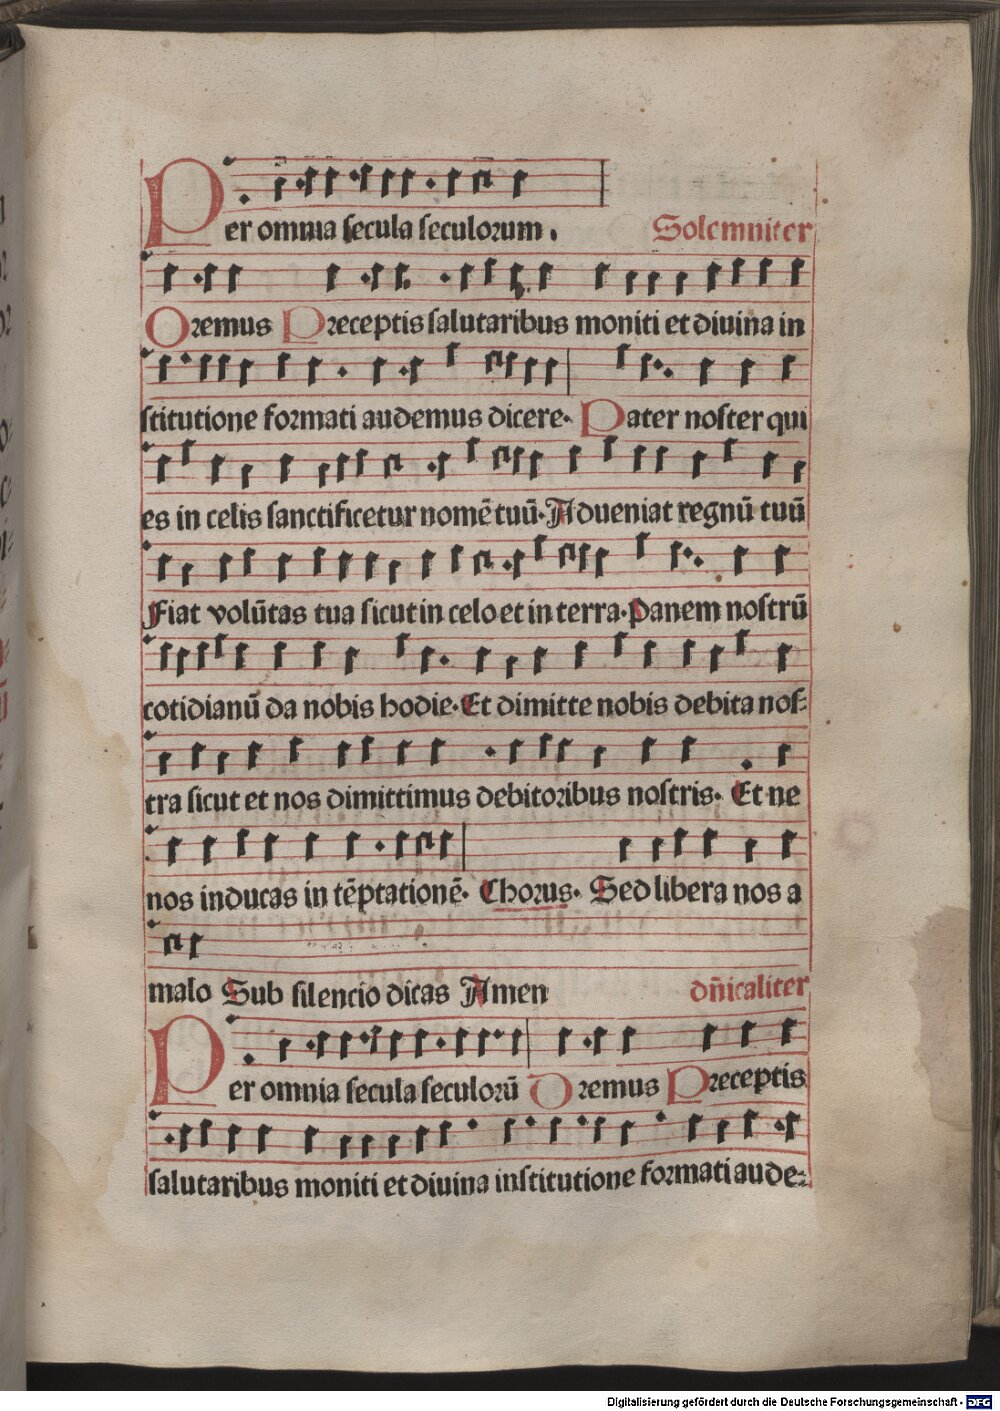 Per omnia secula seculorum. Solemniter
Oremus Preceptis salutaribus moniti et diuina in
stitutione formati audemus dicere. Pater noster qui
es in celis sanctificetur nomē tuū. Adueniat regnū tuū
Fiat volūtas tua sicut in celo et in terra. Panem nostrū
cotidianū da nobis hodie. Et dimitte nobis debita nos⸗
tra sicut et nos dimittimus debitoribus nostris. Et ne
nos inducas in tēptationē. Chorus. Sed libera nos a
malo Sub silencio dicas Amen dn̄icaliter
Per omnia secula seculorū Oremus Preceptis
salutaribus moniti et diuina institutione formati aude⸗
Digitalisierung gefördert durch die Deutsche Forschungsgemeinschaft - DFG